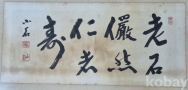 老石
儼然
仁者
壽
kobay